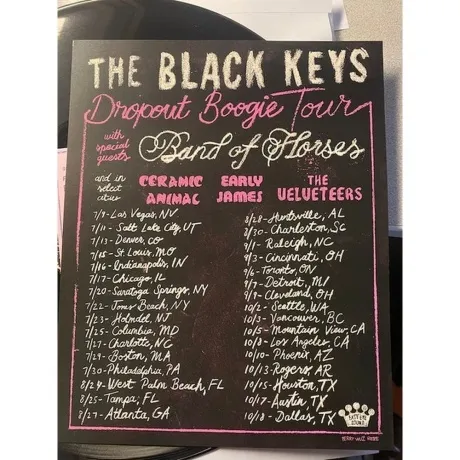 THE BLACK KEYS
Dropout Boogie Tour
with special guests
Band of Horses
and in select cities
CERAMIC ANIMAL
EARLY JAMES
THE VELVETEERS
7/9 - Las Vegas, NV
7/11 - Salt Lake City, UT
7/13 - Denver, CO
7/15 - St. Louis, MO
7/16 - Indianapolis, IN
7/17 - Chicago, IL
7/20 - Saratoga Springs, NY
7/22 - Jones Beach, NY
7/23 - Holmdel, NJ
7/25 - Columbia, MD
7/27 - Charlotte, NC
7/29 - Boston, MA
7/30 - Philadelphia, PA
8/24 - West Palm Beach, FL
8/25 - Tampa, FL
8/27 - Atlanta, GA
8/28 - Huntsville, AL
8/30 - Charleston, SC
9/1 - Raleigh, NC
9/3 - Cincinnati, OH
9/6 - Toronto, ON
9/7 - Detroit, MI
9/9 - Cleveland, OH
10/2 - Seattle, WA
10/3 - Vancouver, BC
10/5 - Mountain View, CA
10/8 - Los Angeles, CA
10/10 - Phoenix, AZ
10/13 - Rogers, AR
10/15 - Houston, TX
10/17 - Austin, TX
10/18 - Dallas, TX
EASY EYE SOUND